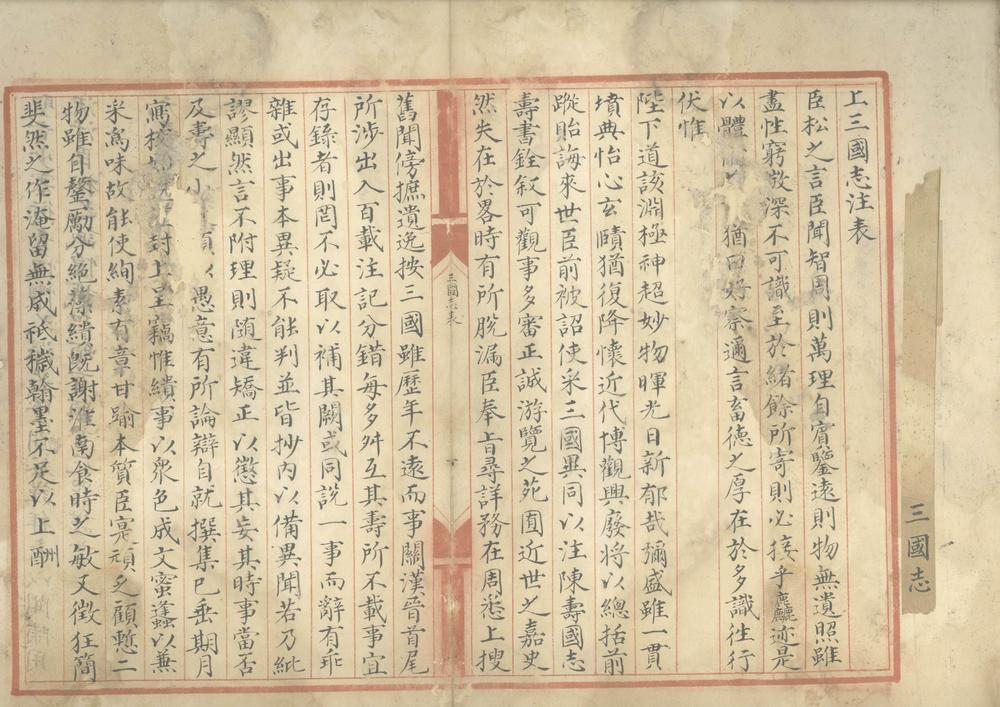 上三國志注表
臣松之言臣聞智周則萬理自賓鑒遠則物無遺照雖
盡性窮微深不可識至於緒餘所寄則必接乎麤迹是
以體 猶曰好察邇言畜德之厚在於多識往行
伏惟
陛下道該淵極神超妙物暉光日新郁哉彌盛雖一貫
墳典怡心玄賾猶復降懷近代博觀興廢將以總括前
蹤貽誨來世臣前被詔使采三國異同以注陳壽國志
壽書銓叙可觀事多審正誠游覽之苑囿近世之嘉史
然失在於畧時有所脫漏臣奉旨尋詳務在周悉上搜
三國志表
舊聞傍摭遺逸按三國雖歷年不遠而事關漢晉首尾
所涉出入百載注記分錯每多舛互其壽所不載事宜
存錄者則罔不必取以補其闕或同說一事而辭有乖
雜或出事本異疑不能判並皆抄內以備異聞若乃紕
謬顯然言不附理則隨違矯正以懲其妄其時事當否
及壽之小 以愚意有所論辯自就撰集已垂期月
寫校 封上呈竊惟繢事以衆色成文蜜蠭以兼
采爲味故能使絢素有章甘踰本質臣寔頑乏顧慙二
物雖自罄勵分絕藻繢既謝淮南食時之敏又徵狂簡
斐然之作淹留無成祗穢翰墨不足以上酬
三國志